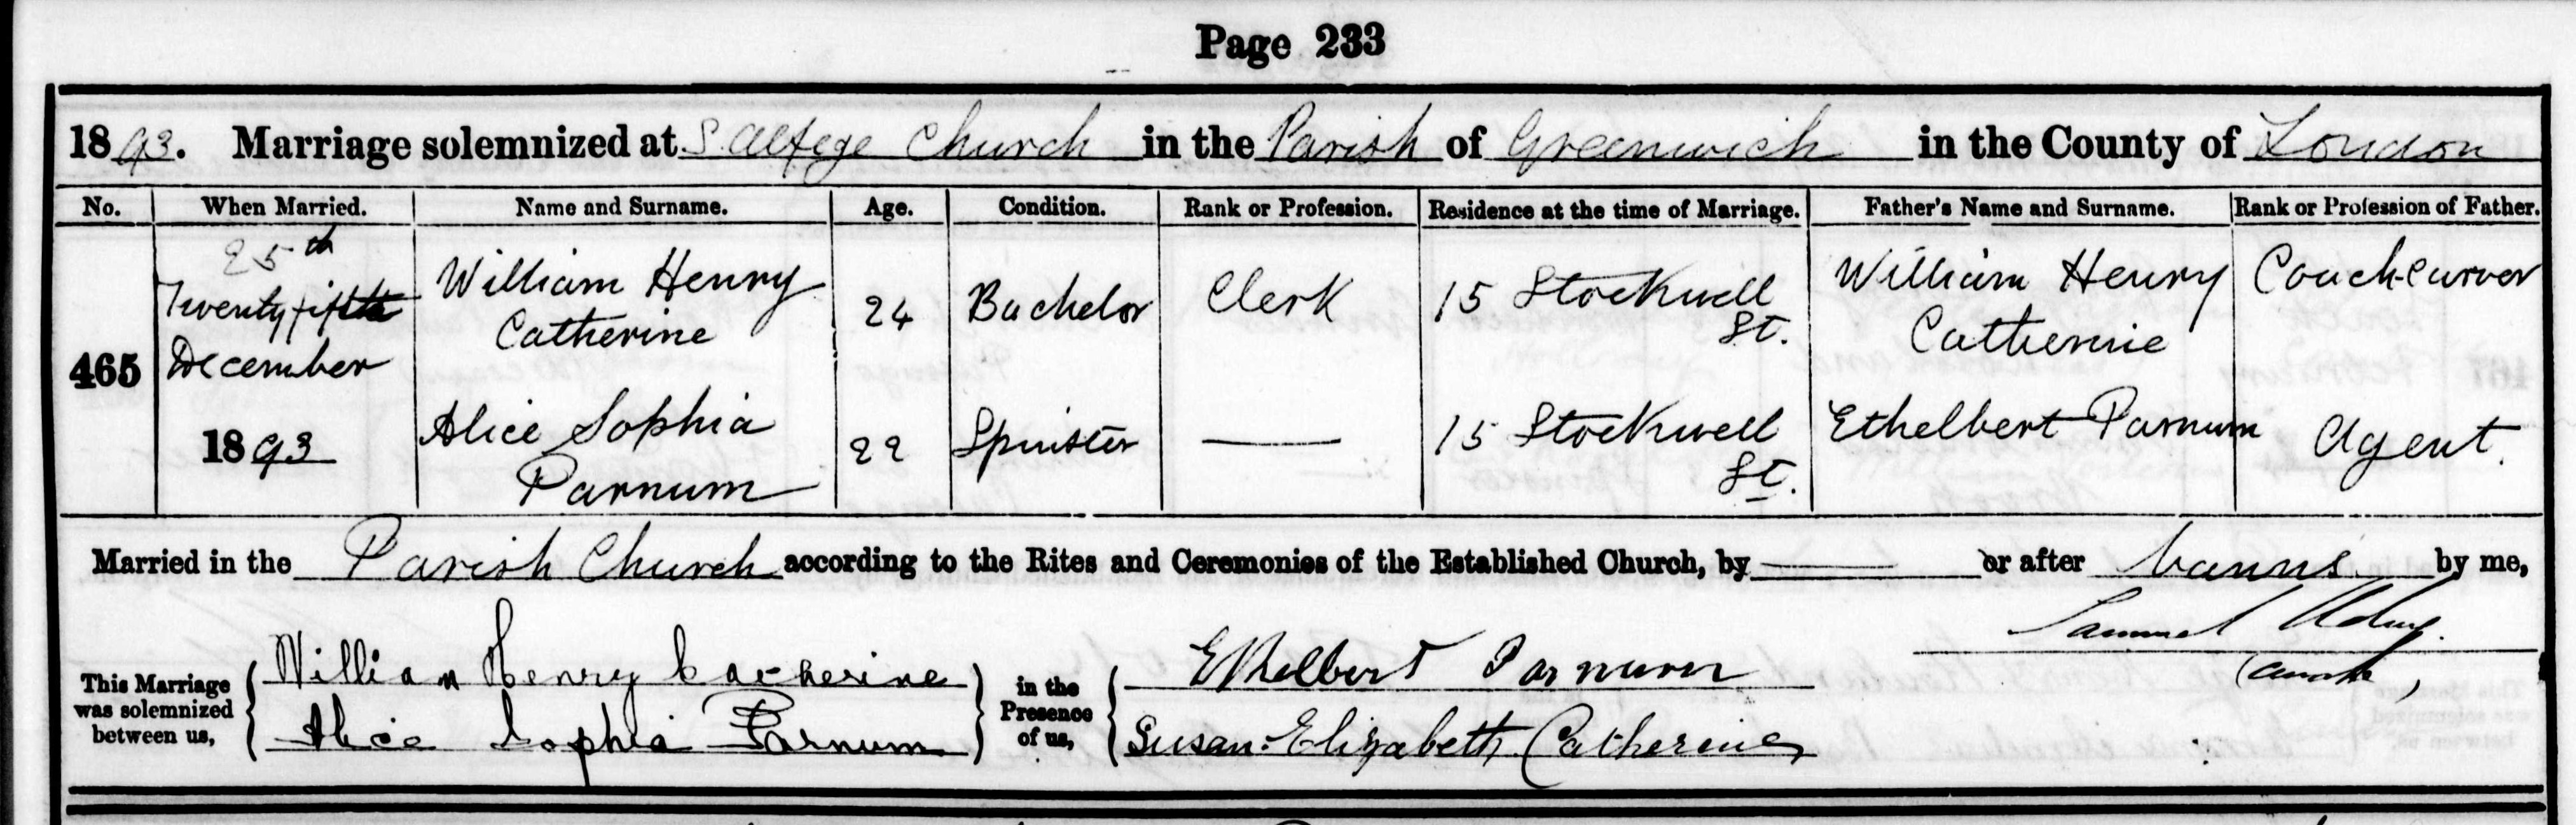 Page 233
1893. Marriage solemnized at S. Alfege Church in the Parish of Greenwich in the County of London
No. When Married. Name and Surname. Age. Condition. Rank or Profession. Residence at the time of Marriage. Father's Name and Surname. Rank or Profession of Father.
465
25th
Twenty fifth
December
1893
William Henry
Catherine
24
Bachelor
Clerk
15 Stockwell
St.
William Henry
Catherine
Coach-Carver
Alice Sophia
Parnum
22
Spinster
15 Stockwell
St.
Ethelbert Parnum
Agent.
Married in the Parish Church according to the Rites and Ceremonies of the Established Church, by or after banns by me,
Samuel
(Curate)
This Marriage
was solemnized
between us,
William Henry Catherine
Alice Sophia Parnum
in the
Presence
of us,
Ethelbert Parnum
Susan Elizabeth Catherine